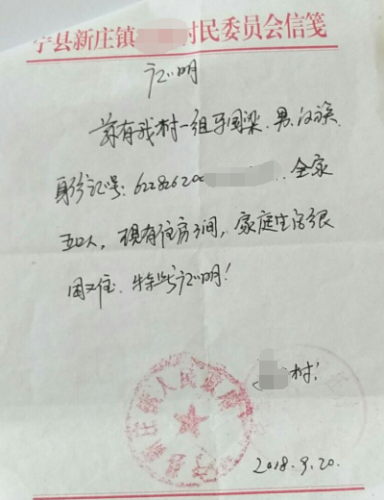 宁县新庄镇 村民委员会信笺
证明
兹有我村一组 国梁、男、汉族、
身份证号:622826200 全家
五口人,现有住房3间,家庭生活很
困难、特此证明!
村
宁县新庄镇人民政府
2018.9.20.